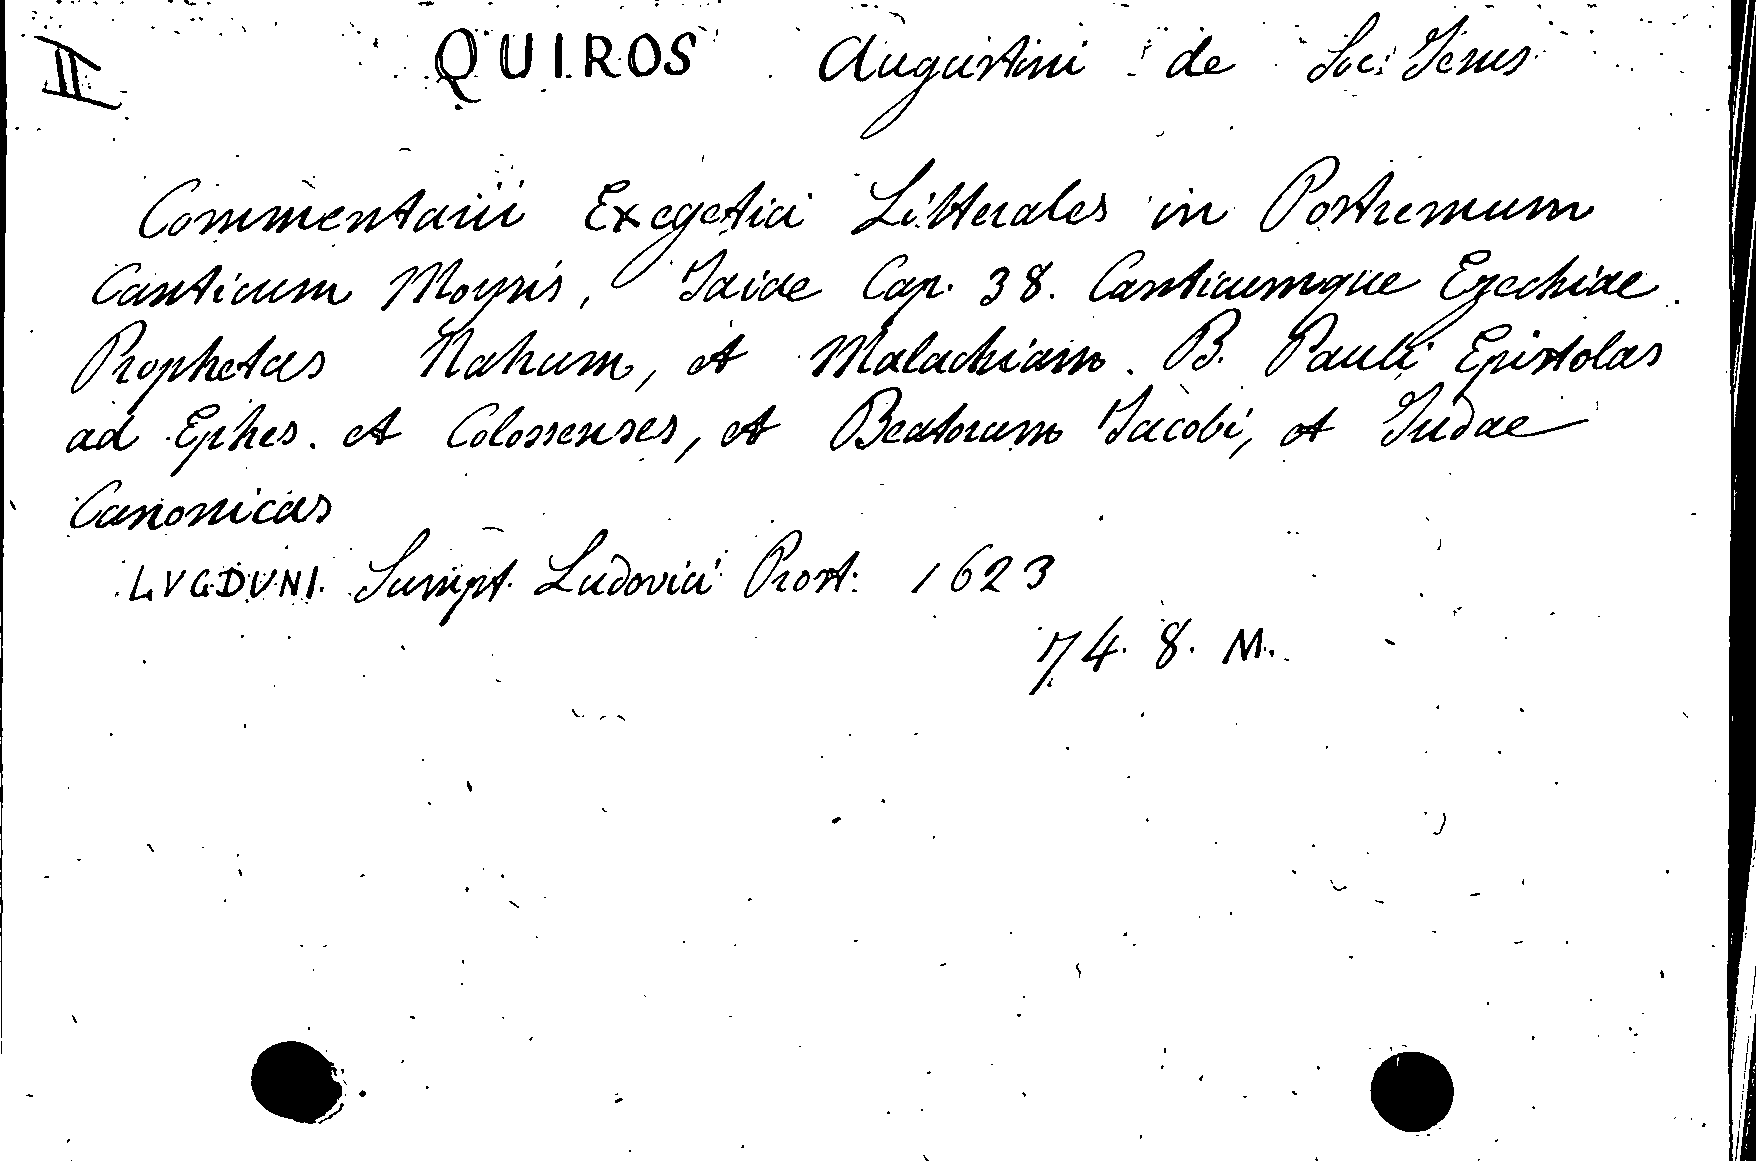 II QUIROS Augustini de Soc: Jesus
Commentarii Exegetici Litterales in Postremum
Canticum Moysis, Isaiae Cap. 38. Canticumque Ezechiae
Prophetas Nahum, et Malachiam. B. Pauli Epistolas
ad Ephes. et Colossenses, et Beatorum Jacobi, et Judae
Canonicas
LVGDUNI. Sumpt. Ludovici Prost: 1623
74. 8. M.